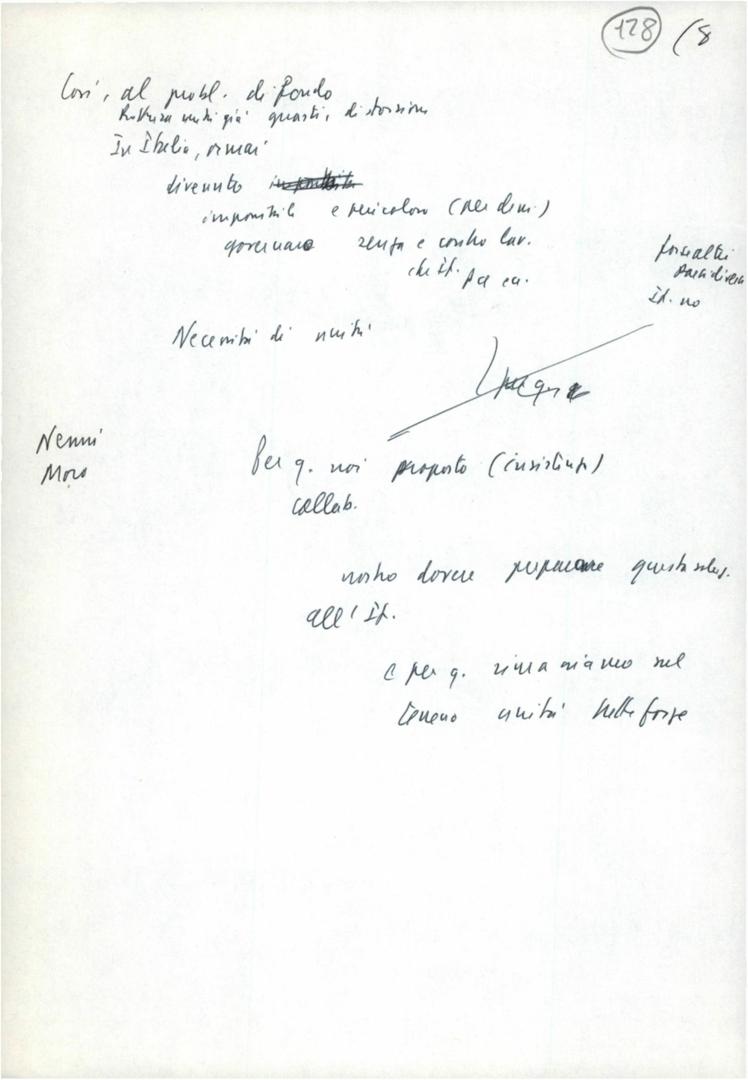 128 (8
Così, al probl. di fondo
Rottura unità già guasti, distorsioni
In Italia, ormai
divenuto
impossibile e pericoloso (per dem.)
governare senza e contro lav.
che it. pa ea.
forse altri
paesi diversi
It. no
Necessità di unità
Nenni
Moro
Per q. noi proposto (insistenza)
collab.
nostro dovere preparare questa soluz.
all' It.
e per q. rimaniamo sul
terreno unità tutte forze